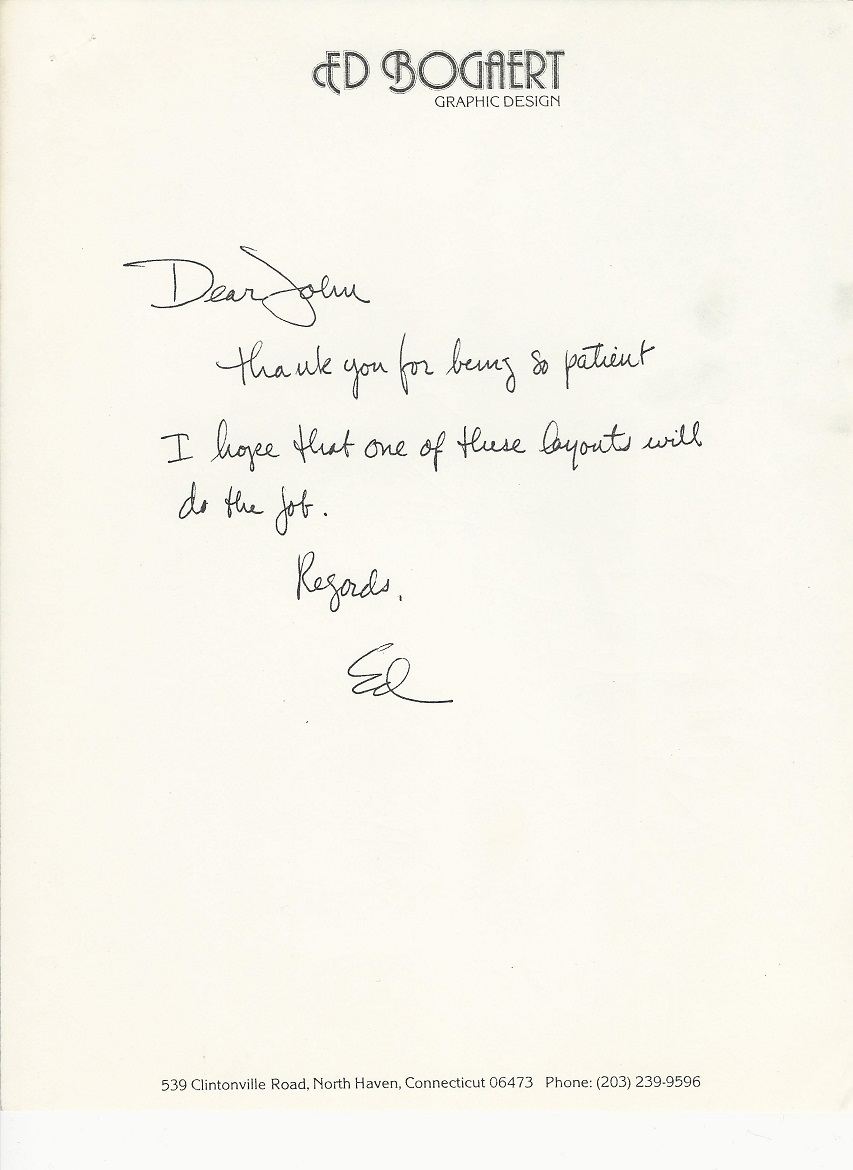 ED BOGAERT
GRAPHIC DESIGN
Dear John
thank you for being so patient
I hope that one of these layouts will
do the job.
Regards,
Ed
539 Clintonville Road, North Haven, Connecticut 06473 Phone: (203) 239-9596